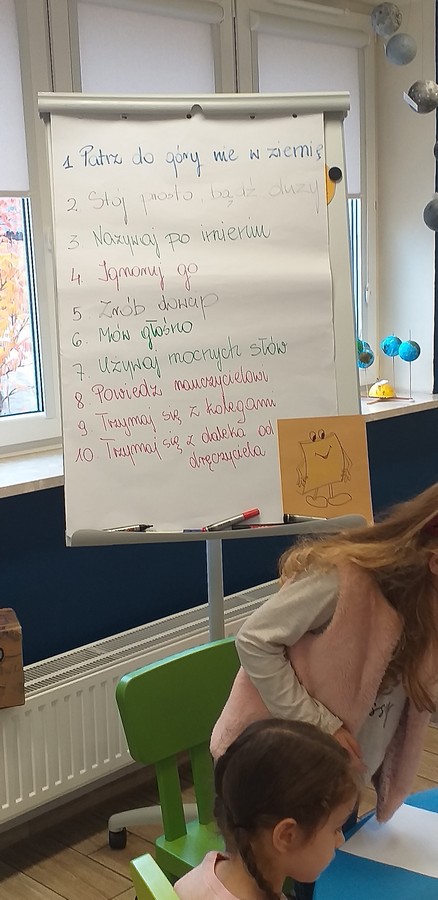 1 Patrz do góry nie w ziemię
2. Stój prosto, bądź duży
3. Nazywaj po imieniu
4. Ignoruj go
5. Zrób dowcip
6. Mów głośno
7. Używaj mocnych słów
8. Powiedz nauczycielowi
9. Trzymaj się z kolegami
10. Trzymaj się z daleka od
dręczyciela